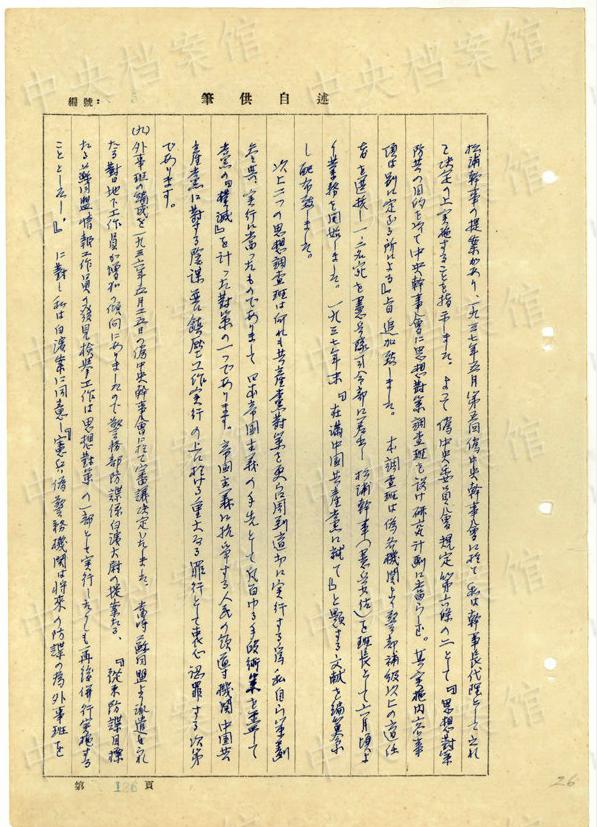 編號：
筆供自述
松浦幹事ノ提案カアリ、一九三七年五月第五回偽中央幹事会ニ於テ私ハ幹事長代理トシテ之れ
ヲ決定ノ上実施スルコトを指示しました。よって偽中央委員会規定第六條ノ二トシテ『思想対策
防共ノ目的を以テ中央幹事会に思想対策調査班を設け研究計画に当らしむ。其ノ実施内容事
項は別に定むる所による』旨追加致しました。本調査班は偽各機関より警部補級以上の適任
者を選抜し
憲兵隊司令部に
松浦幹事（憲兵中佐）を班長として六月頃よ
り業務を開始しました。一九三七年末『在満中国共産党に就て』と題する文献を編纂
し配布致しました。
次上二つの思想調査班は何れも共産党対策を更に周到適切に実行する為私自ら策劃
参与、実行に当ったものでありまして日本帝国主義の手先として凡百ゆる手段術策を盡して
党の『撲滅』を計った対策の一つであります。帝国主義に抗争する人民の領導機関中国共
産党に対する陰謀
鎮圧工作実行の上に於ける重大なる罪行として衷心認罪する次第
であります。
(九)外事班の編成を一九三六年五月二五日の偽中央幹事会に於て審議決定いたしました。当時蘇同盟より派遣せられ
たる対日地下工作員が増加の傾向にありましたので警務部防諜係白濱大尉の提案たる『従来防諜目標
たる蘇同盟情報工作員の發見検挙工作は思想対策の一部として実行したるも再後併行実施する
こととし』に対し私は白濱案に同意し『憲兵、偽警務機関は将来の防諜の為外事班を
第 126 頁
26
中央档案馆